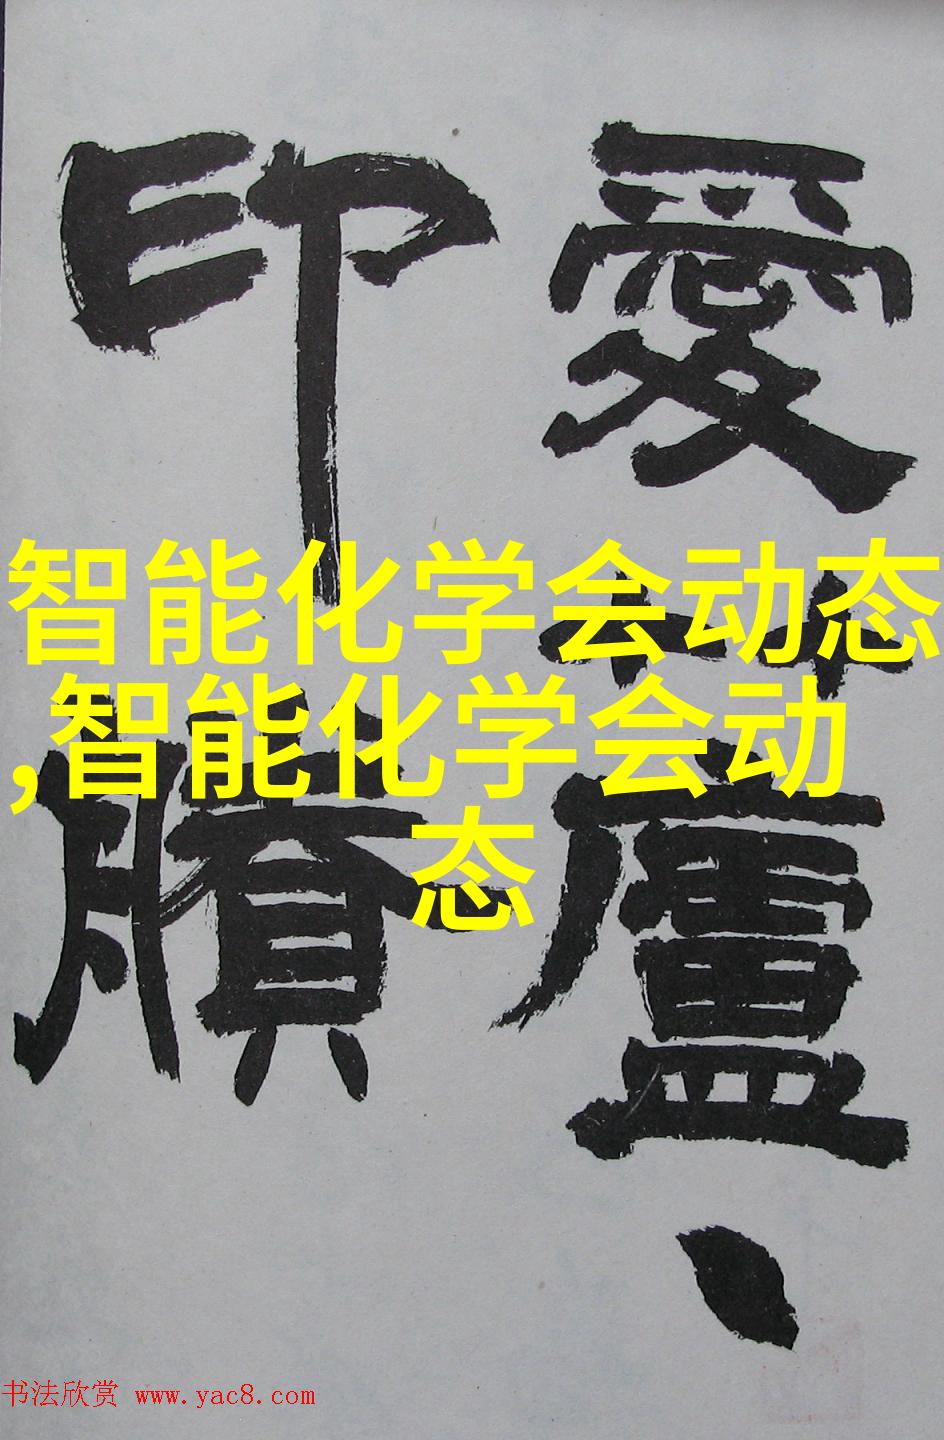 愛蘆
印牘
智能化学会动态
,智能化学会动
态
书法欣赏 www.yac8.com